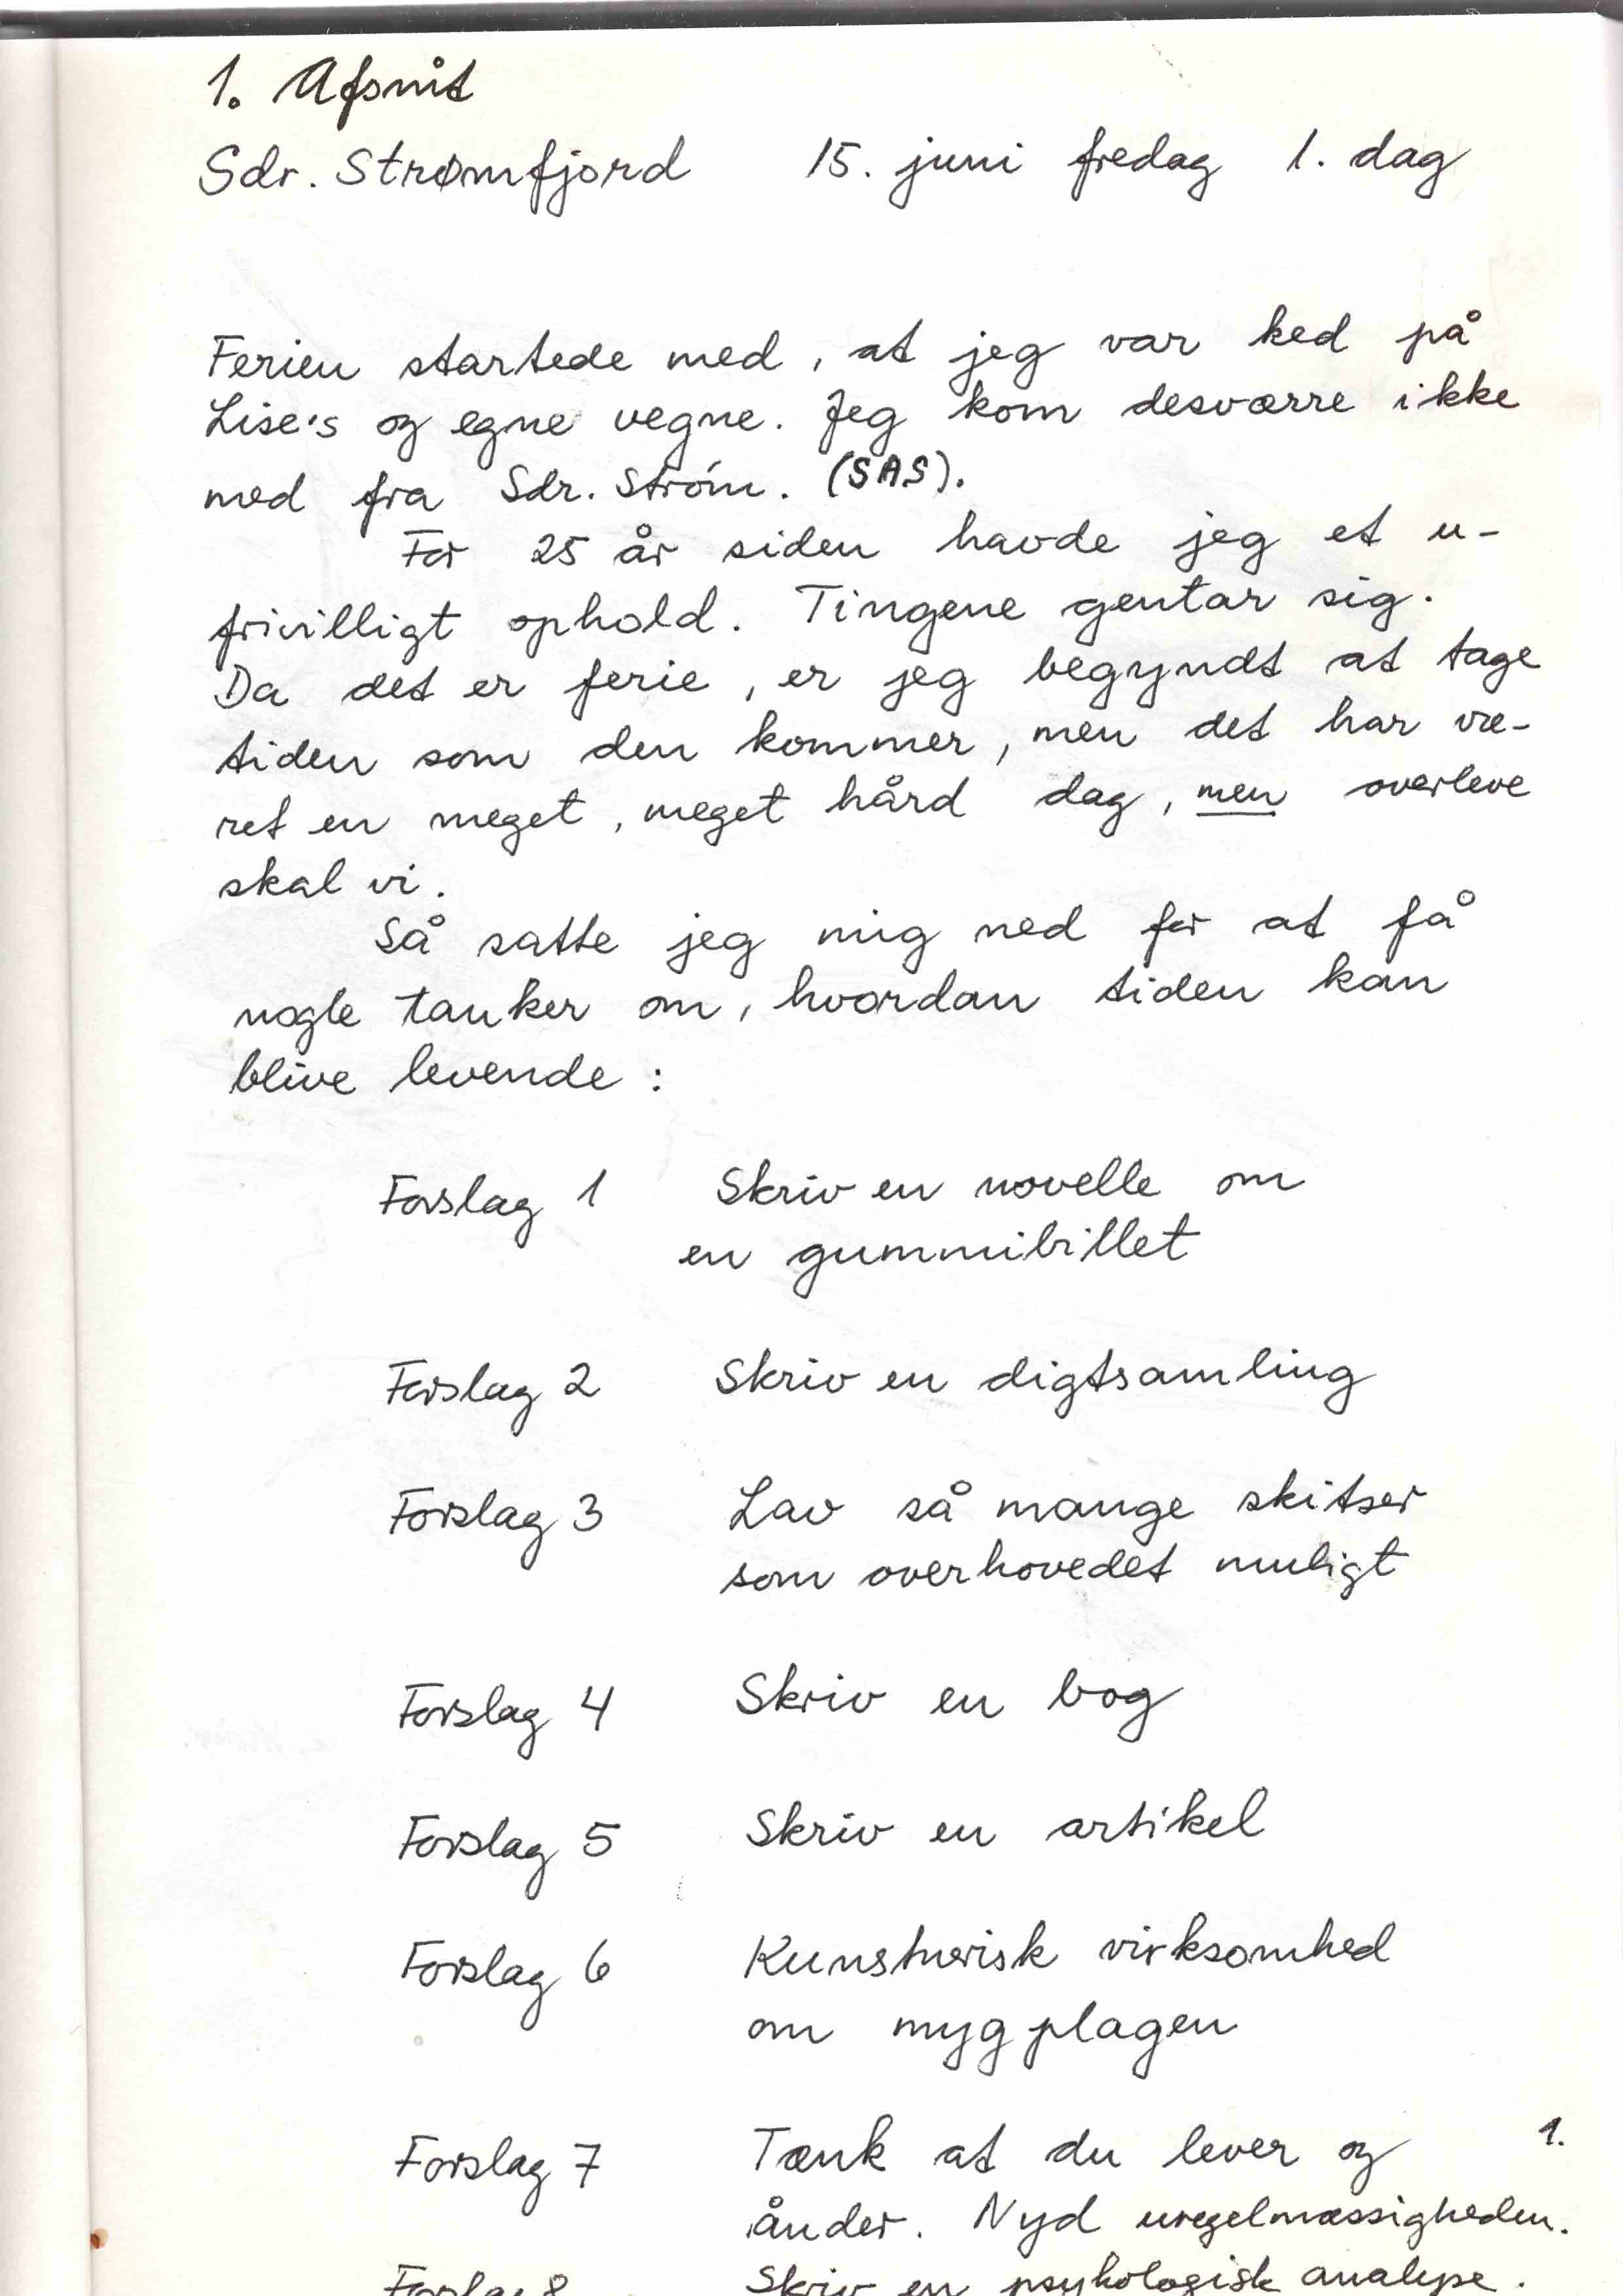 1. Afsnit
Sdr. Strømfjord 15. juni fredag 1. dag
Ferien startede med, at jeg var ked på
Lise's og egne vegne. Jeg kom desværre ikke
med fra Sdr. Strøm. (SAS).
For 25 år siden havde jeg et u-
frivilligt ophold. Tingene gentar sig.
Da det er ferie, er jeg begyndt at tage
tiden som den kommer, men det har væ-
ret en meget, meget hård dag, men overleve
skal vi.
Så satte jeg mig ned for at få
nogle tanker om, hvordan tiden kan
blive levende :
Forslag 1 Skriv en novelle om
en gummibillet
Forslag 2 Skriv en digtsamling
Forslag 3 Lav så mange skitser
som overhovedet muligt
Forslag 4 Skriv en bog
Forslag 5 Skriv en artikel
Forslag 6 Kunstnerisk virksomhed
om mygplagen
Forslag 7 Tænk at du lever og
ånder. Nyd uregelmæssigheden.
1.
Forslag 8 Skriv en psykologisk analyse.